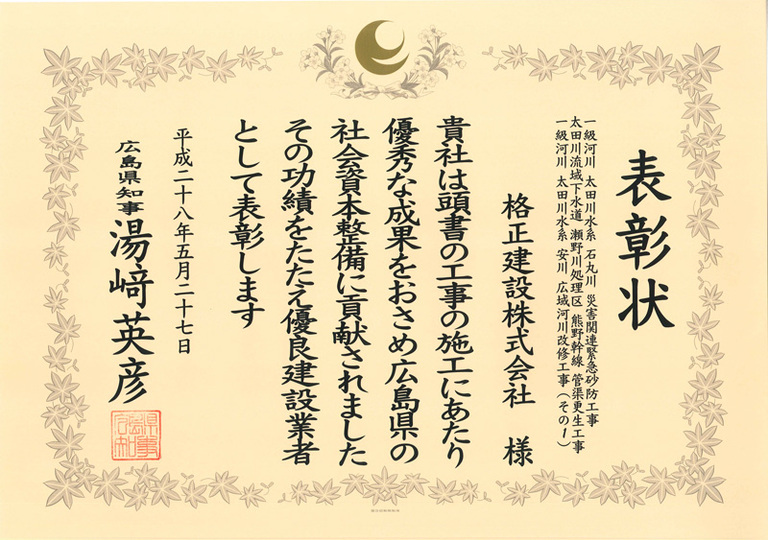 表彰状
一級河川 太田川水系 石丸川 災害関連緊急砂防工事
太田川流域下水道 瀬野川処理区 熊野幹線 管渠更生工事
一級河川 太田川水系 安川 広域河川改修工事（その1）
格正建設株式会社 様
貴社は頭書の工事の施工にあたり
優秀な成果をおさめ広島県の
社会資本整備に貢献されました
その功績をたたえ優良建設業者
として表彰します
平成二十八年五月二十七日
広島県知事 湯﨑英彦